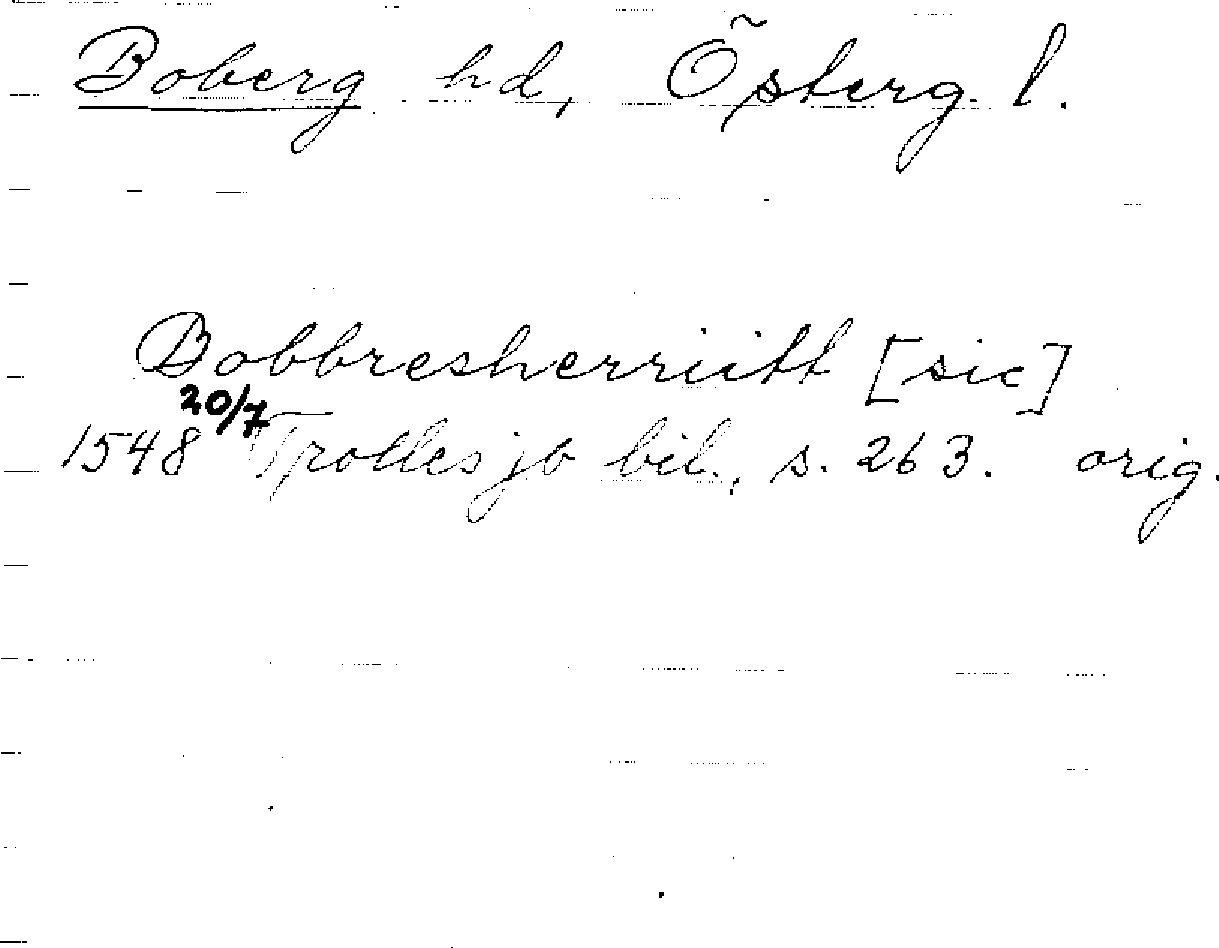 Boberg hd, Österg. l.
Bobbresherriitt [sic]
20/7
1548 Trolles jb bil., s. 263. orig.